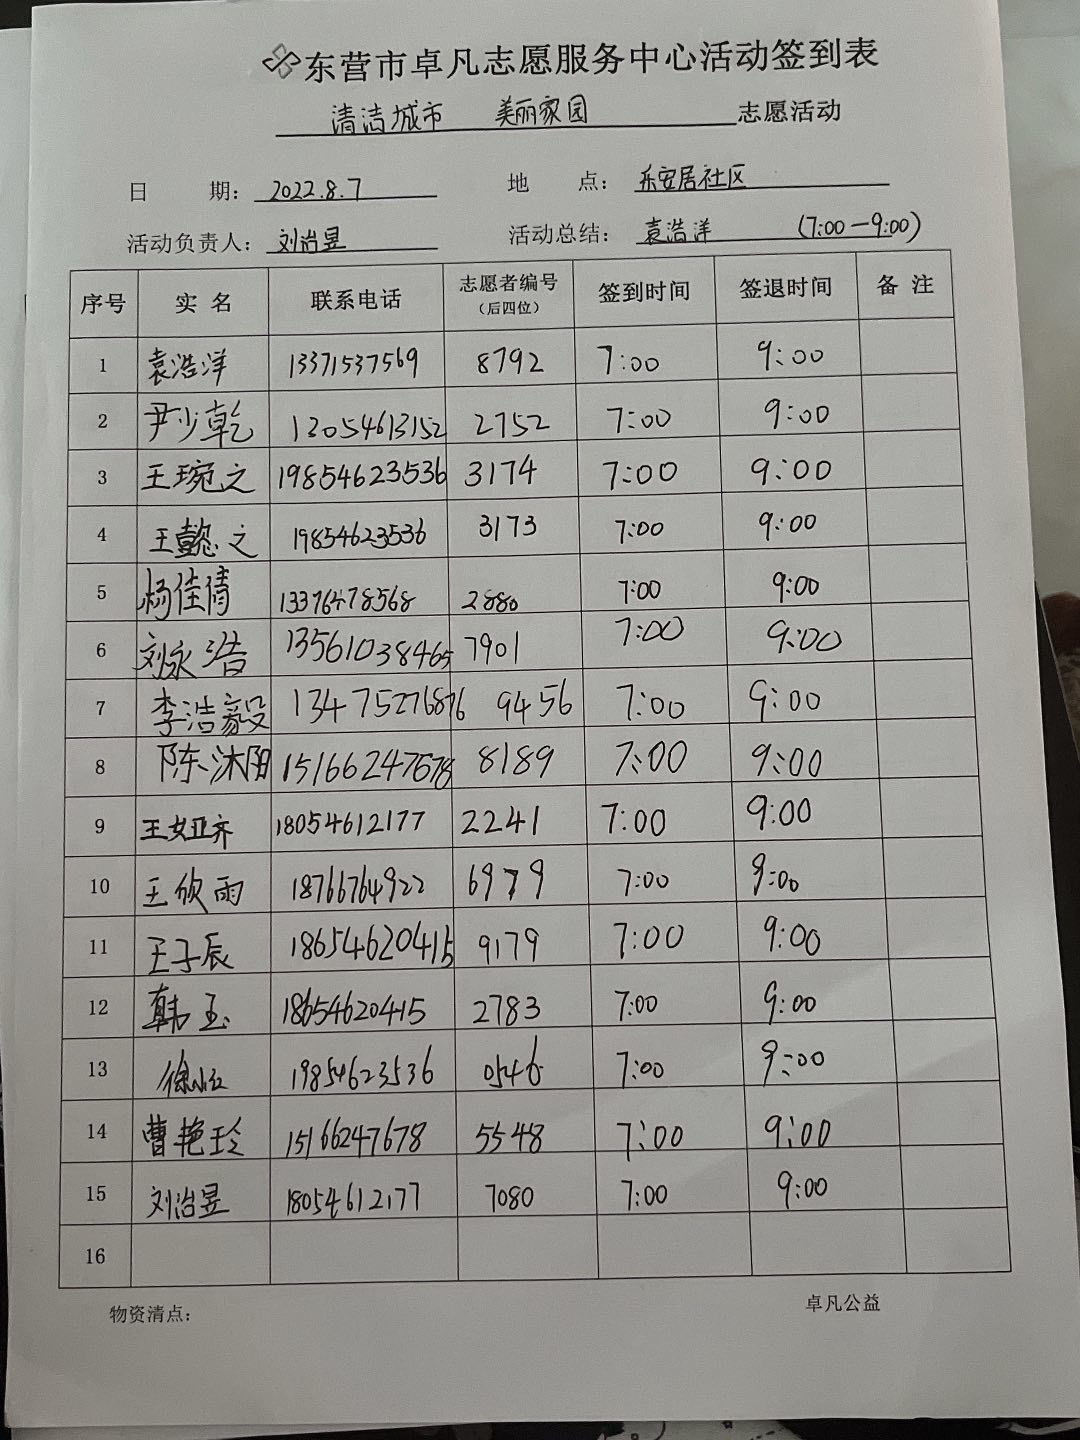 东营市卓凡志愿服务中心活动签到表
清洁城市 美丽家园 志愿活动
日 期: 2022.8.7 地 点: 东安居社区
活动负责人: 刘治昱 活动总结: 袁浩洋 (7:00-9:00)
序号 实名 联系电话 志愿者编号(后四位) 签到时间 签退时间 备注
1 袁浩洋 13371537569 8792 7:00 9:00
2 尹少乾 13054613152 2752 7:00 9:00
3 王琬之 19854623536 3174 7:00 9:00
4 王懿之 19854623536 3173 7:00 9:00
5 杨佳倩 13376478568 2880 7:00 9:00
6 刘永浩 13561038465 7901 7:00 9:00
7 李浩毅 13475276876 9456 7:00 9:00
8 陈沐阳 15166247678 8189 7:00 9:00
9 王如亚齐 18054612177 2241 7:00 9:00
10 王欣雨 18766764922 6979 7:00 9:00
11 王子辰 18654620415 9179 7:00 9:00
12 韩玉 18654620415 2783 7:00 9:00
13 19854623536 0546 7:00 9:00
14 曹艳玲 15166247678 5548 7:00 9:00
15 刘治昱 18054612177 7080 7:00 9:00
16
物资清点: 卓凡公益